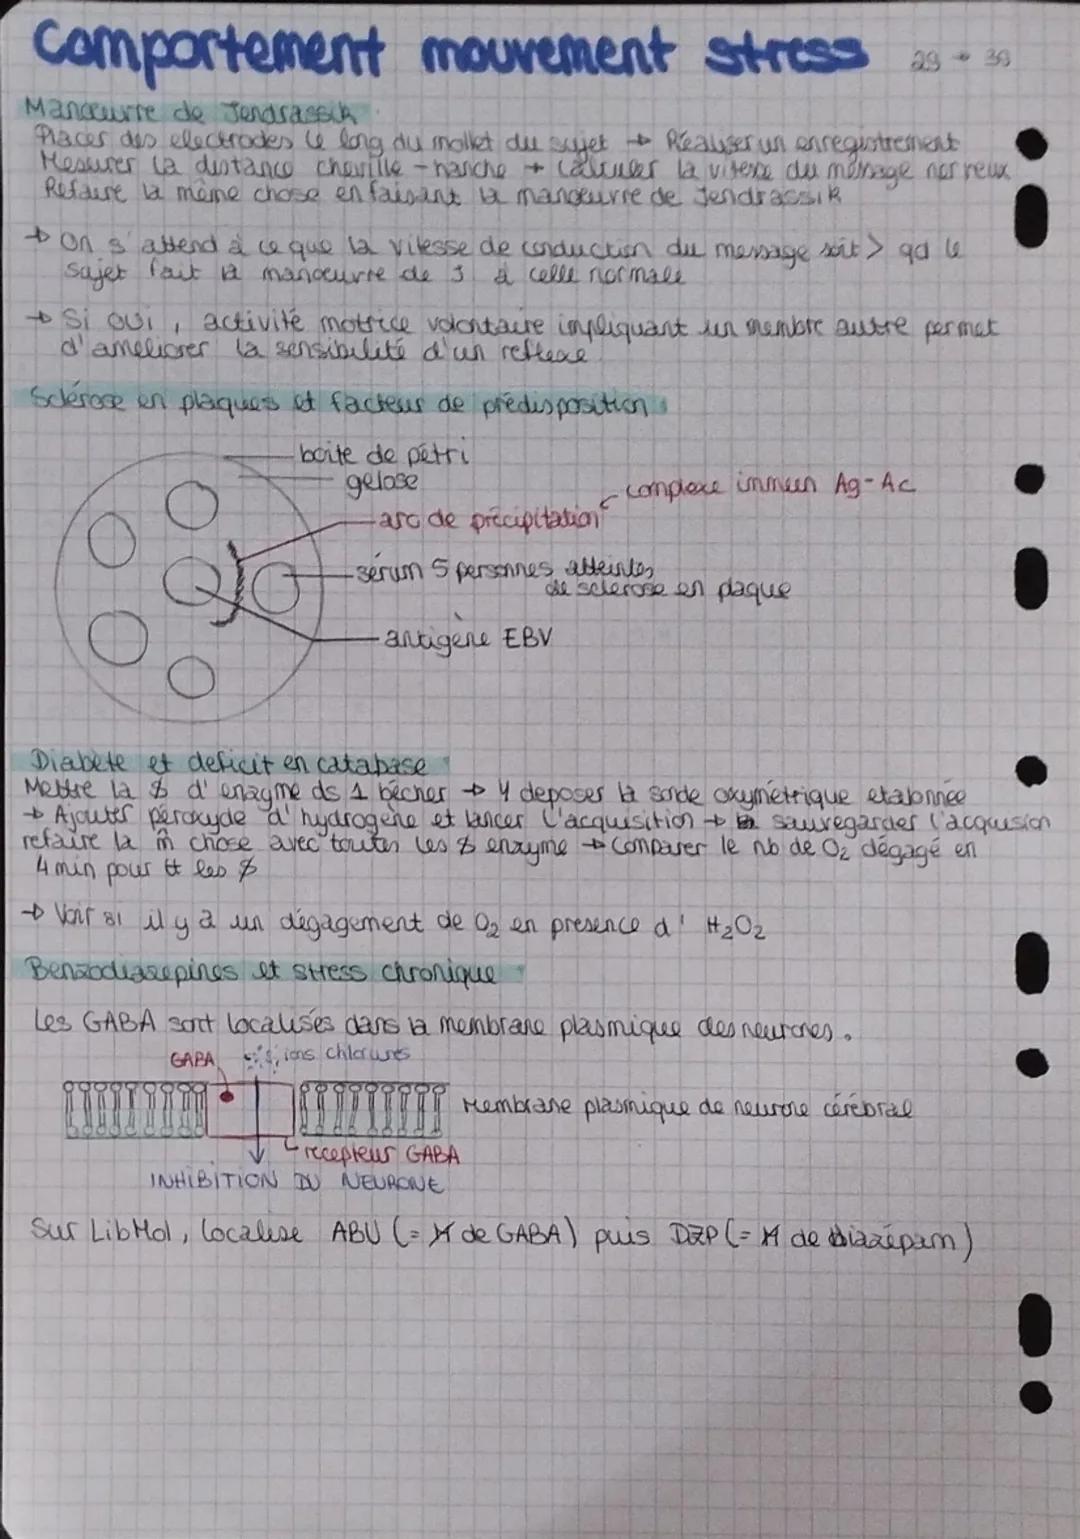 Comportement mouvement stress 29 → 39
Manœuvre de Jendrassik
Placer des electrodes le long du mollet du sujet → Réaliser un enregistrement
Mesurer la distance cheville - hanche → Calculer la vitesse du message nerveux
Refaire la même chose en faisant la manœuvre de Jendrassik
→ On s'attend à ce que la vitesse de conduction du message soit > qd le
sujet fait la manœuvre de J à celle normale
→ Si oui, activité motrice volontaire impliquant un membre autre permet
d'améliorer la sensibilité d'un reflexe
Sclérose en plaques et facteur de prédisposition
boite de pétri
gelose
complexe immun Ag-Ac
arc de précipitation
sérum 5 personnes atteintes
de sclerose en plaque
antigène EBV
Diabète et deficit en catabase
Mettre la $ d'enzyme ds 1 bécher → y deposer la sonde oxymétrique etalonnée
→ Ajouter péroxyde d'hydrogène et lancer l'acquisition → sauvegarder l'acquision
refaire la m̂ chose avec toutes les $ enzyme → Comparer le nb de O₂ dégagé en
4 min pour tt les $
→ Voir si il y a un dégagement de O₂ en presence d' H₂O₂
Benzodiazepines et stress chronique
Les GABA sont localisés dans la membrane plasmique des neurones.
GABA ions chlorures
Membrane plasmique de neurone cérébral
recepteur GABA
INHIBITION DU NEURONE
Sur LibMol, localise ABU (= M de GABA) puis DZP (= M de diazépam)